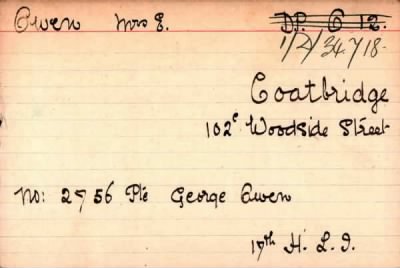 Owen Mrs E. D.P. 6 12.
1/2/34718.
Coatbridge
102ᶜ Woodside Street
No: 2756 Pte George Owen
17th H. L. I.